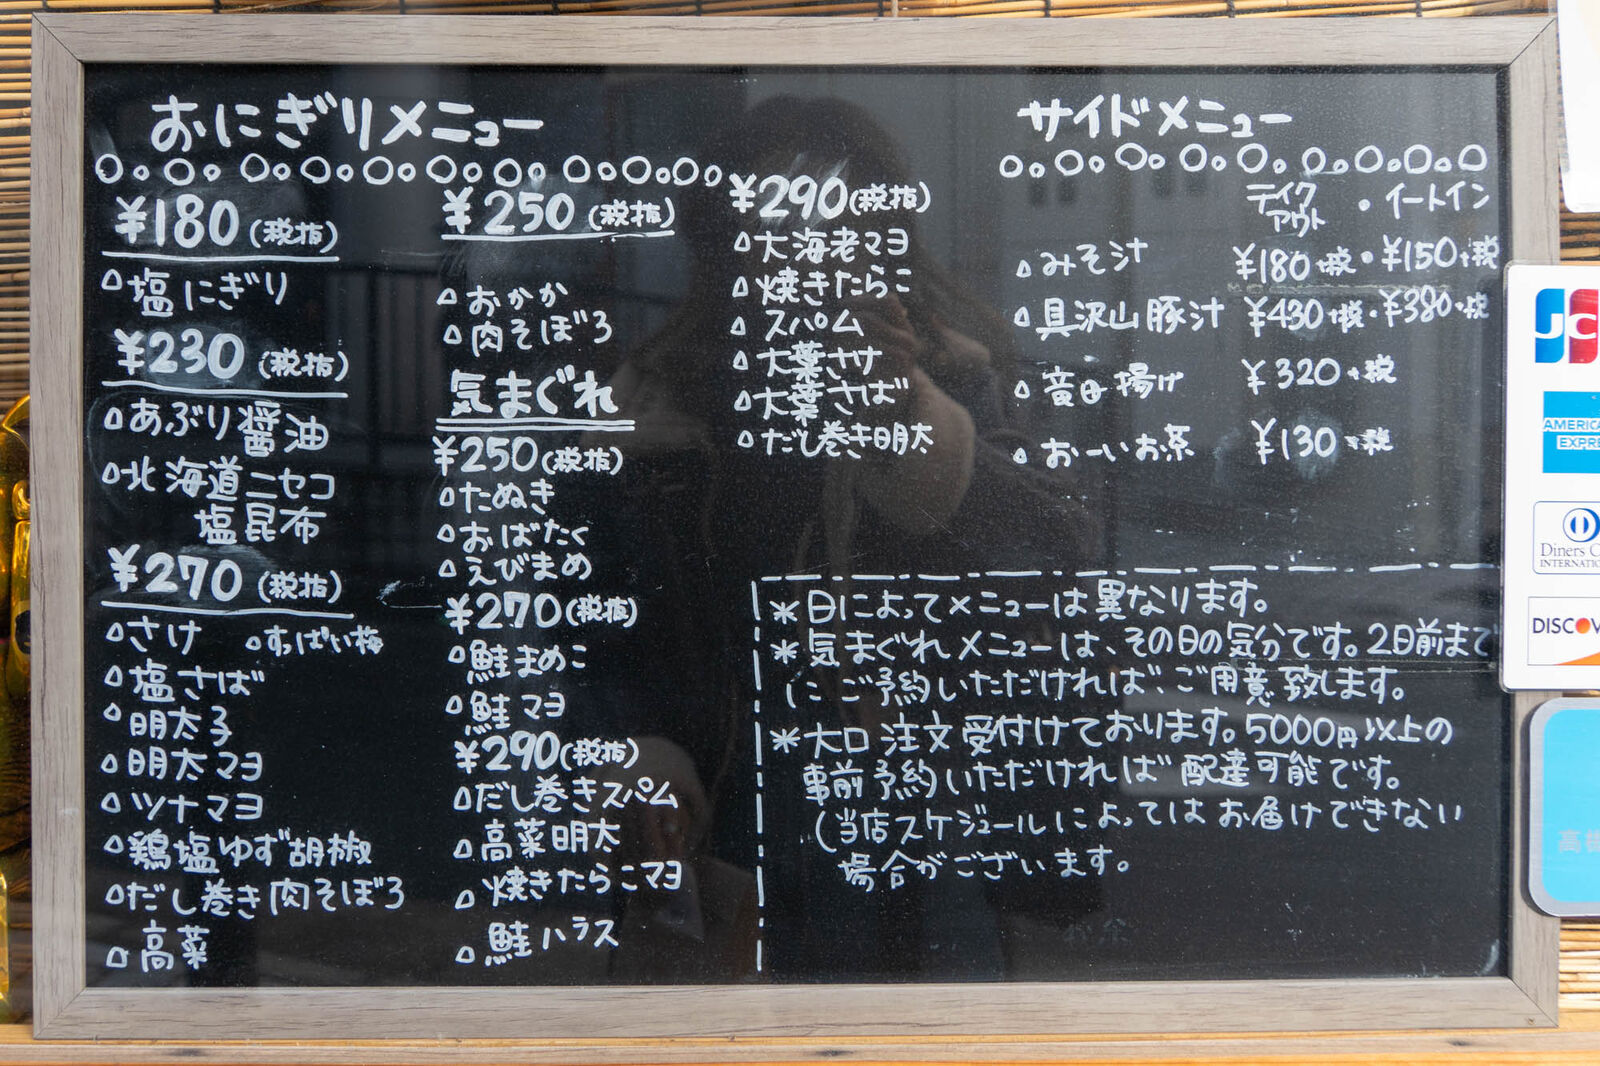 おにぎりメニュー
¥180(税抜)
塩にぎり
¥230(税抜)
あぶり醤油
北海道ニセコ
塩昆布
¥270(税抜)
さけ すっぱい梅
塩さば
明太子
明太マヨ
ツナマヨ
鶏塩ゆず胡椒
だし巻き肉そぼろ
高菜
¥250(税抜)
おかか
肉そぼろ
気まぐれ
¥250(税抜)
たぬき
おばたく
えびまめ
¥270(税抜)
鮭まめこ
鮭マヨ
¥290(税抜)
だし巻きスパム
高菜明太
焼きたらこマヨ
鮭ハラス
¥290(税抜)
大海老マヨ
焼きたらこ
スパム
大葉さけ
大葉さば
だし巻き明太
サイドメニュー
テイクアウト・イートイン
みそ汁 ¥180+税・¥150+税
具沢山豚汁 ¥430+税・¥380+税
竜田揚げ ¥320+税
おーいお茶 ¥130+税
*日によってメニューは異なります。
*気まぐれメニューは、その日の気分です。2日前まで
にご予約いただければ、ご用意致します。
*大口注文受付けております。5000円以上の
事前予約いただければ配達可能です。
(当店スケジュールによってはお届けできない
場合がございます。
JC
AMERICA
EXPRE
Diners C
INTERNATIO
DISCOV